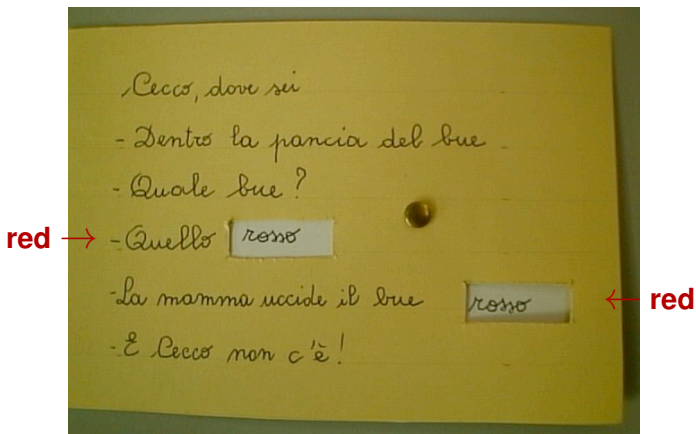 Cecco, dove sei
- Dentro la pancia del bue
- Quale bue?
red → - Quello rosso
- La mamma uccide il bue rosso ← red
- E Cecco non c'è!